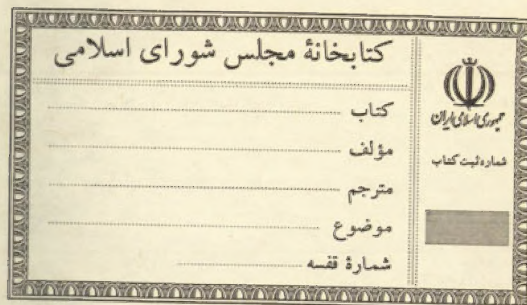 کتابخانهٔ مجلس شورای اسلامی
کتاب
مؤلف
مترجم
موضوع
شمارهٔ قفسه
جمهوری اسلامی ایران
شماره ثبت کتاب